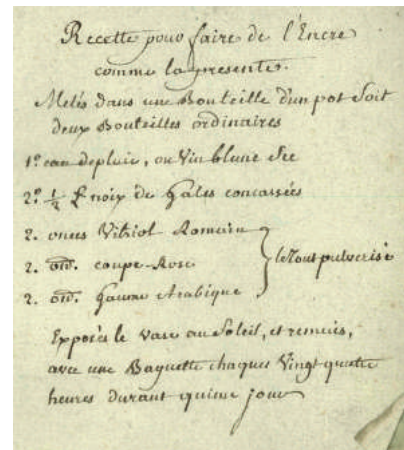 Recette pour faire de l'Encre
comme la presente.
Melés dans une Bouteille d'un pot Soit
deux Bouteilles ordinaires
1º eau de pluie, ou Vin blanc Sec
2º ½ ℔ noix de Gales concassées
2. onces Vitriol Romain
2. coupe-Rose } le Tout pulverisé
2. Gaume Arabique
Exposés le vase au Soleil, et remués,
avec une Baguette chaques Vingt quatre
heures durant quinze jour